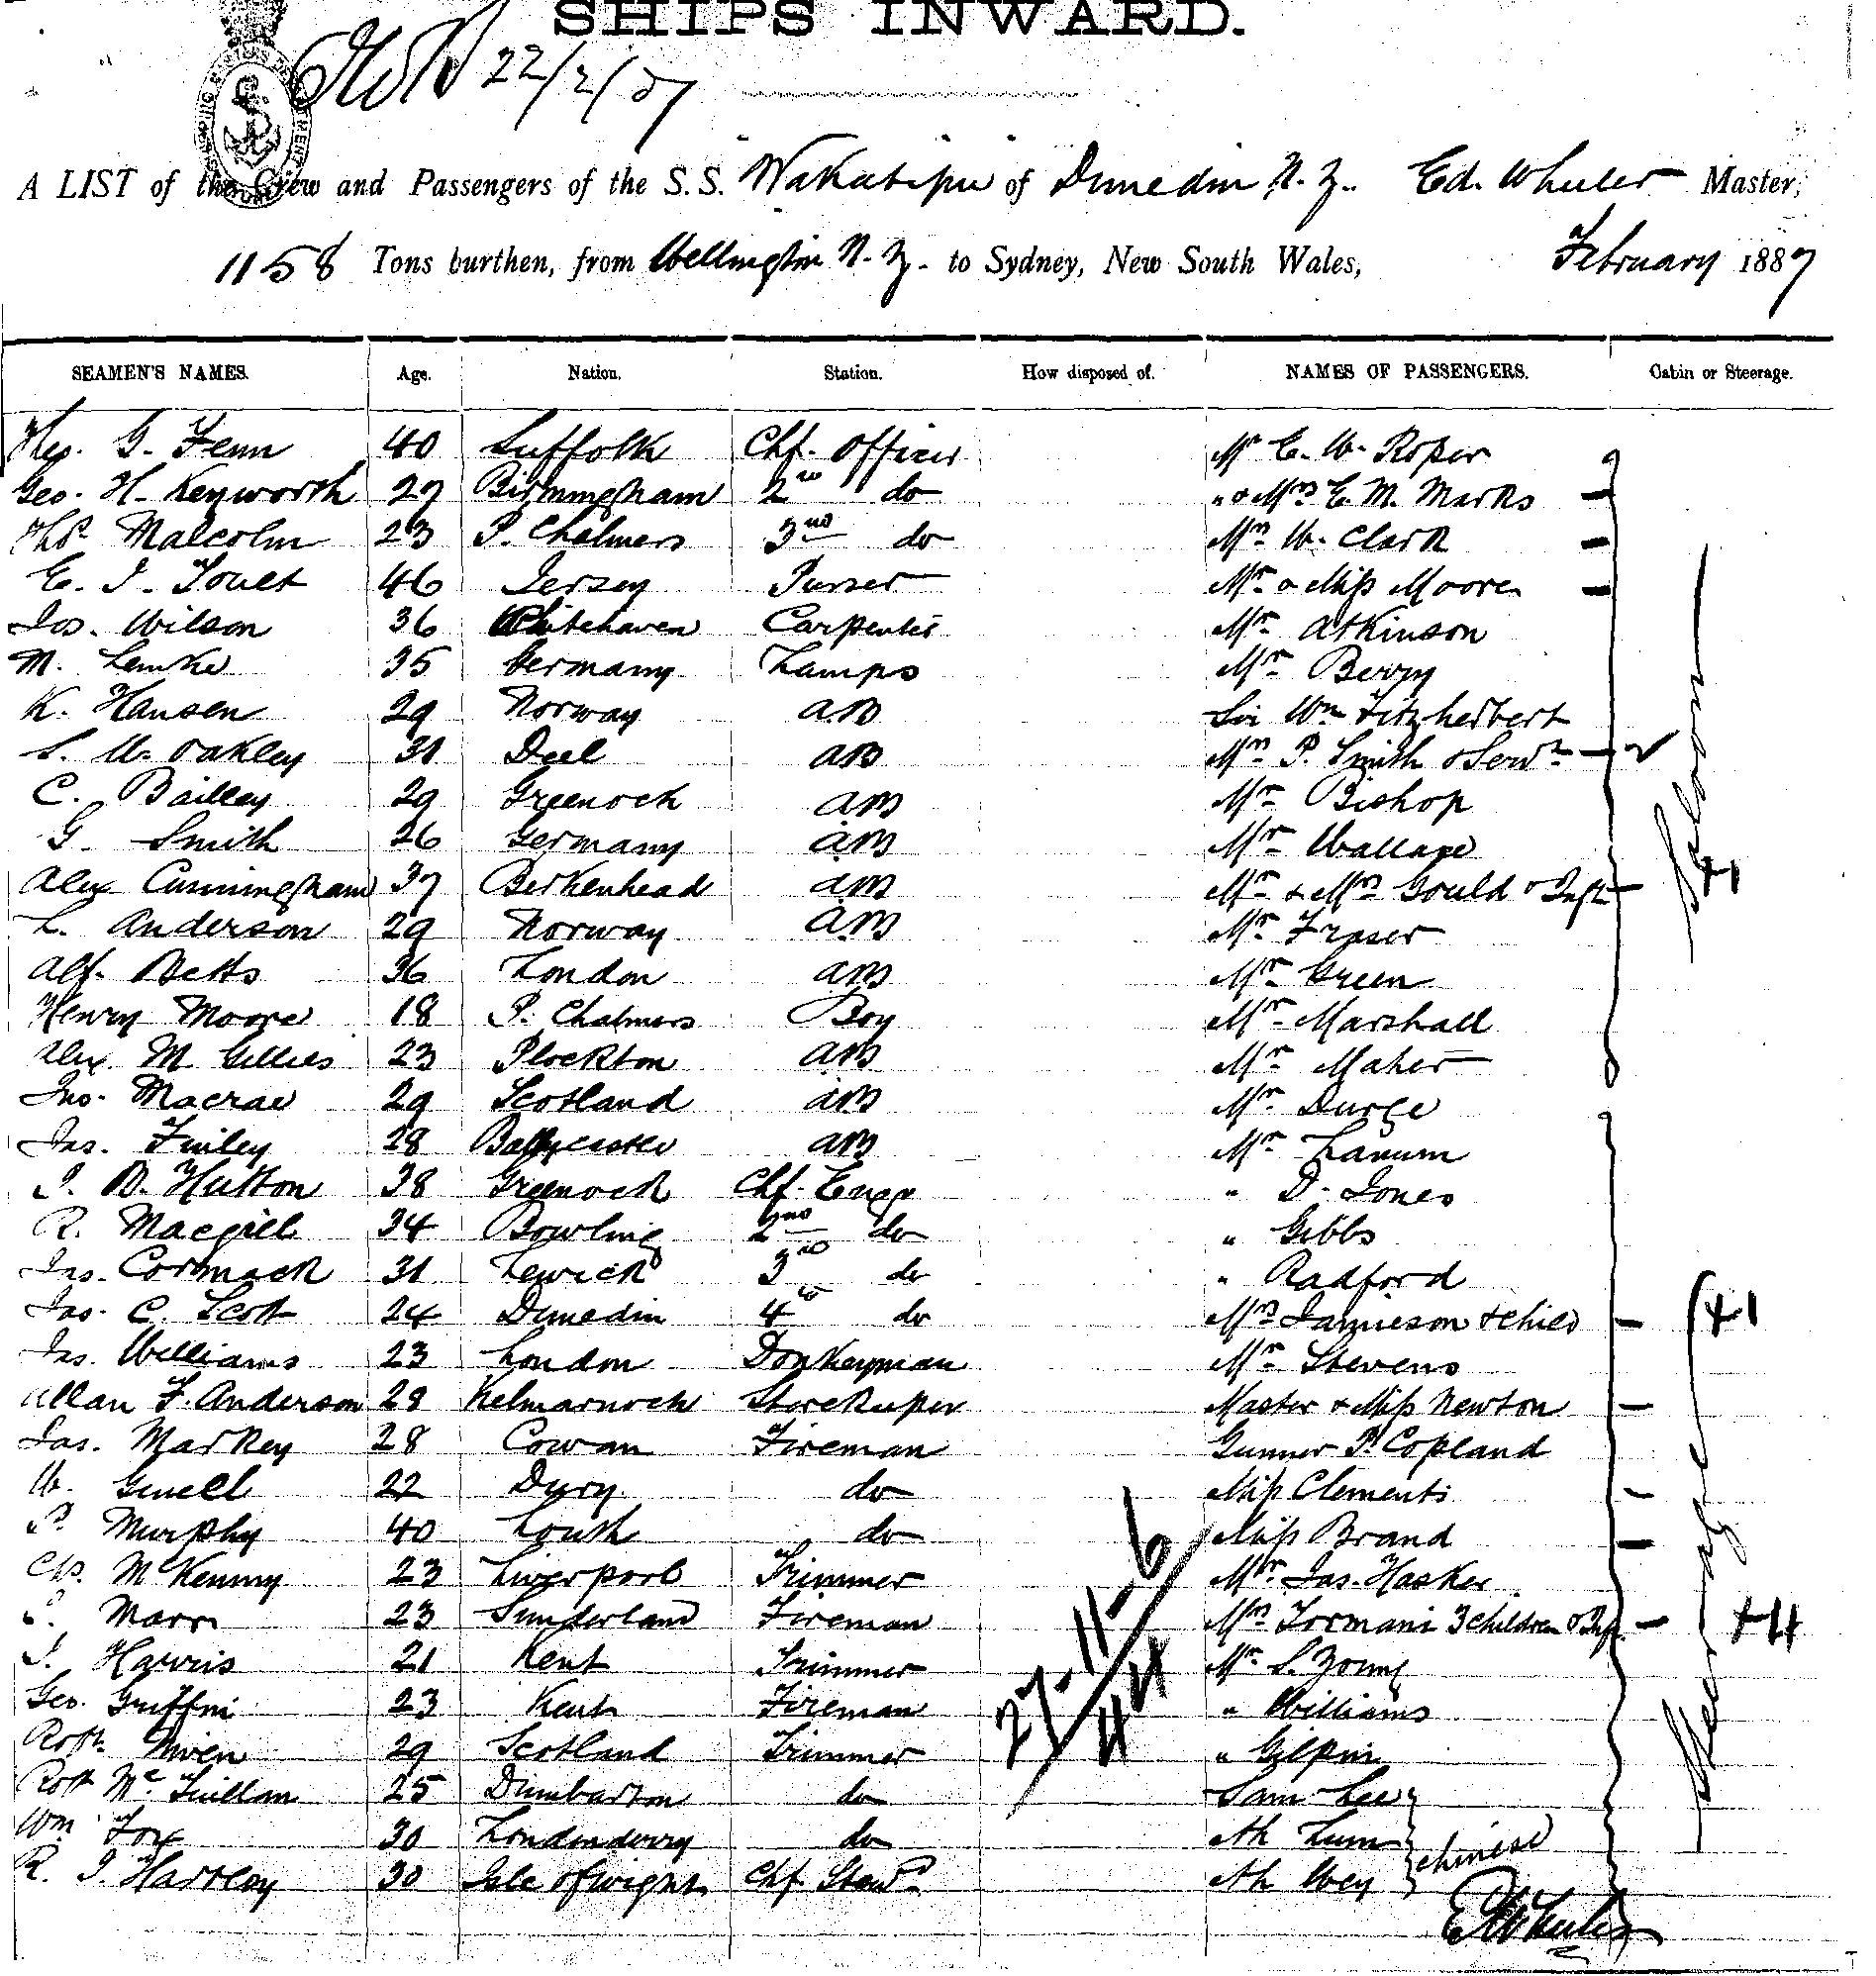 SHIPS INWARD.
22/2/87
A LIST of the Crew and Passengers of the S.S. Wakatipu of Dunedin N.Z. Ed. Wheeler Master,
1158 Tons burthen, from Wellington N.Z. to Sydney, New South Wales, February 1887
SEAMEN'S NAMES. Age. Nation. Station. How disposed of. NAMES OF PASSENGERS. Cabin or Steerage.
G. Fenn 40 Suffolk Chf. Officer Mr E. W. Roper
Geo. H. Kenworth 27 Birmingham 2nd do " & Mrs E. M. Marks
Thos Malcolm 23 P. Chalmers 3rd do Mrs W. Clark
E. J. 46 Jersey Purser Mr & Miss Moore
Jos. Wilson 36 Whitehaven Carpenter Mr Atkinson
M. Lemke 35 Germany Lamps Mr Berry
K. Hansen 29 Norway AB Sir Wm Fitzherbert
S. W. Oakley 31 Deel AB Mrs P. Smith & Servt
C. Bailley 29 Greenock AB Mr Bishop
G. Smith 26 Germany AB Mr Wallace
Alex Cunningham 37 Berkenhead AB Mr & Mrs Gould & Inft
L. Anderson 29 Norway AB Mr Fraser
Alf. Betts 36 London AB Mr Green
Henry Moore 18 P. Chalmers Boy Mr Marshall
Alex. M Gillies 23 Plockton AB Mr Maher
Jno. Macrae 29 Scotland AB Mr
Jas. Finley 28 AB Mr Lanum
J. B. Hutton 38 Greenock Chf. Engr " D. Jones
R. Macgill 34 Bowling 2nd do " Gibbs
Jas. Cormack 31 Lewick 3rd do " Radford
Jas. C. Scott 24 Dunedin 4th do Mrs Jamieson & child +1
Jas. Williams 23 London Donkeyman Mr Stevens
Allan F. Anderson 28 Kelmarnock Storekeeper Master & Miss Newton
Jas. Markey 28 Cowan Fireman Gunner P. Copland
W. Gwell 22 Dury do Miss Clements
P. Murphy 40 Louth do Miss Brand
Chs. McKenny 23 Liverpool Trimmer Mr Jas. Hasker
Marr 23 Sunderland Fireman Mrs Tormani 3 children & Inf. +4
J. Harris 21 Kent Trimmer Mr S. Young
Geo. Griffin 23 Kent Fireman " Williams
Robt. Niven 29 Scotland Trimmer " Gilpin
Robt Mc Quillan 25 Dumbarton do Sam Lee
Wm Fox 30 Londonderry do Ah Lum
R. J. Hartley 30 Isle of Wight Chf Stewd Ah Wey
Chinese
Saloon
+1
Steerage
27-11-6
44
E Wheeler